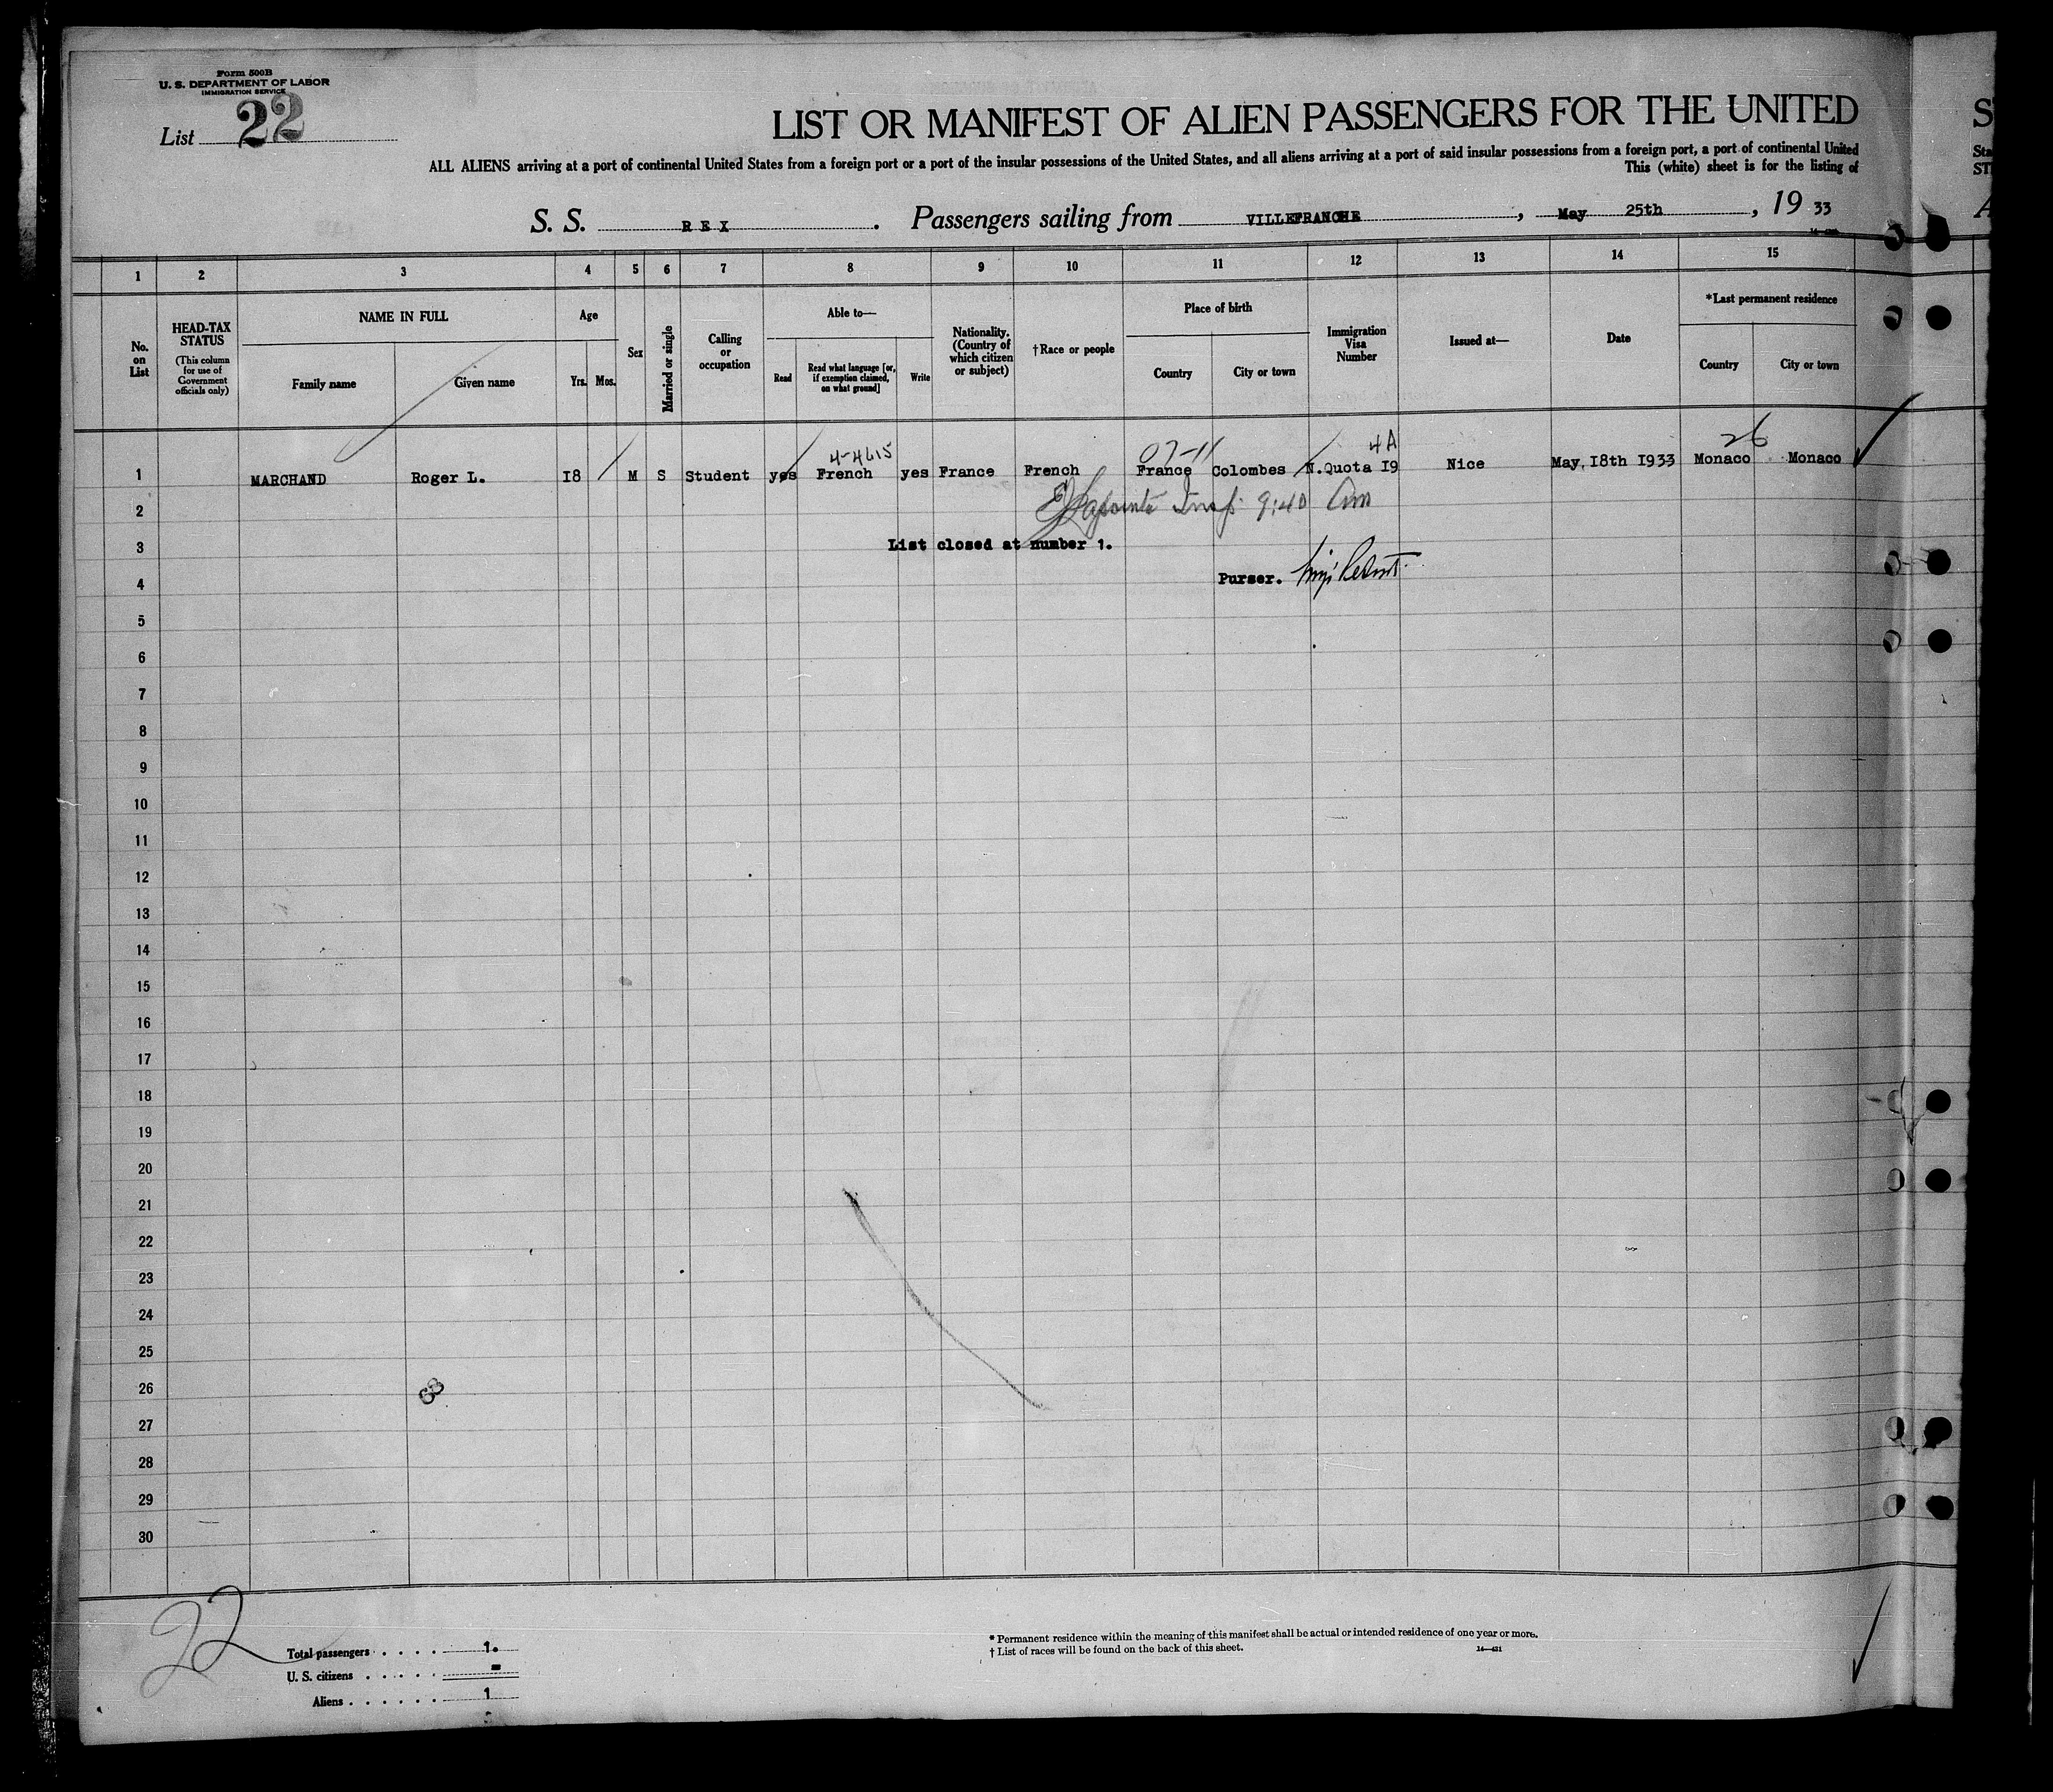 Form 500B
U. S. DEPARTMENT OF LABOR
IMMIGRATION SERVICE
List 22
LIST OR MANIFEST OF ALIEN PASSENGERS FOR THE UNITED
ALL ALIENS arriving at a port of continental United States from a foreign port or a port of the insular possessions of the United States, and all aliens arriving at a port of said insular possessions from a foreign port, a port of continental United
This (white) sheet is for the listing of
S. S. REX. Passengers sailing from VILLEFRANCHE, May 25th, 19 33
1 2 3 4 5 6 7 8 9 10 11 12 13 14 15
No. on List
HEAD-TAX STATUS (This column for use of Government officials only)
NAME IN FULL
Family name Given name
Age
Yrs. Mos.
Sex
Married or single
Calling or occupation
Able to—
Read Read what language [or, if exemption claimed, on what ground] Write
Nationality. (Country of which citizen or subject)
†Race or people
Place of birth
Country City or town
Immigration Visa Number
Issued at—
Date
*Last permanent residence
Country City or town
4-4615 07-11 4A 26
1 MARCHAND Roger L. 18 M S Student yes French yes France French France Colombes N.Quota 19 Nice May, 18th 1933 Monaco Monaco
2 Lapointe Insp. 9:40 Am
3 List closed at number 1.
4 Purser.
5
6
7
8
9
10
11
12
13
14
15
16
17
18
19
20
21
22
23
24
25
26
27
28
29
30
22
Total passengers 1.
U. S. citizens -
Aliens 1
* Permanent residence within the meaning of this manifest shall be actual or intended residence of one year or more.
† List of races will be found on the back of this sheet.